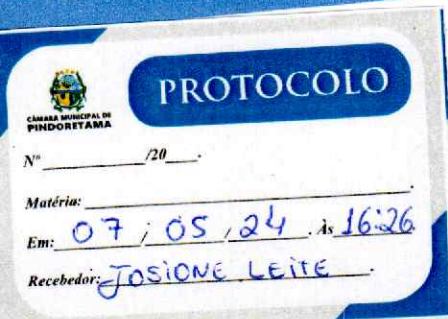 CÂMARA MUNICIPAL DE
PINDORETAMA
PROTOCOLO
Nº ____________/20____.
Matéria: ____________.
Em: 07 / 05 / 24. Às 16:26
Recebedor: JOSIONE LEITE.